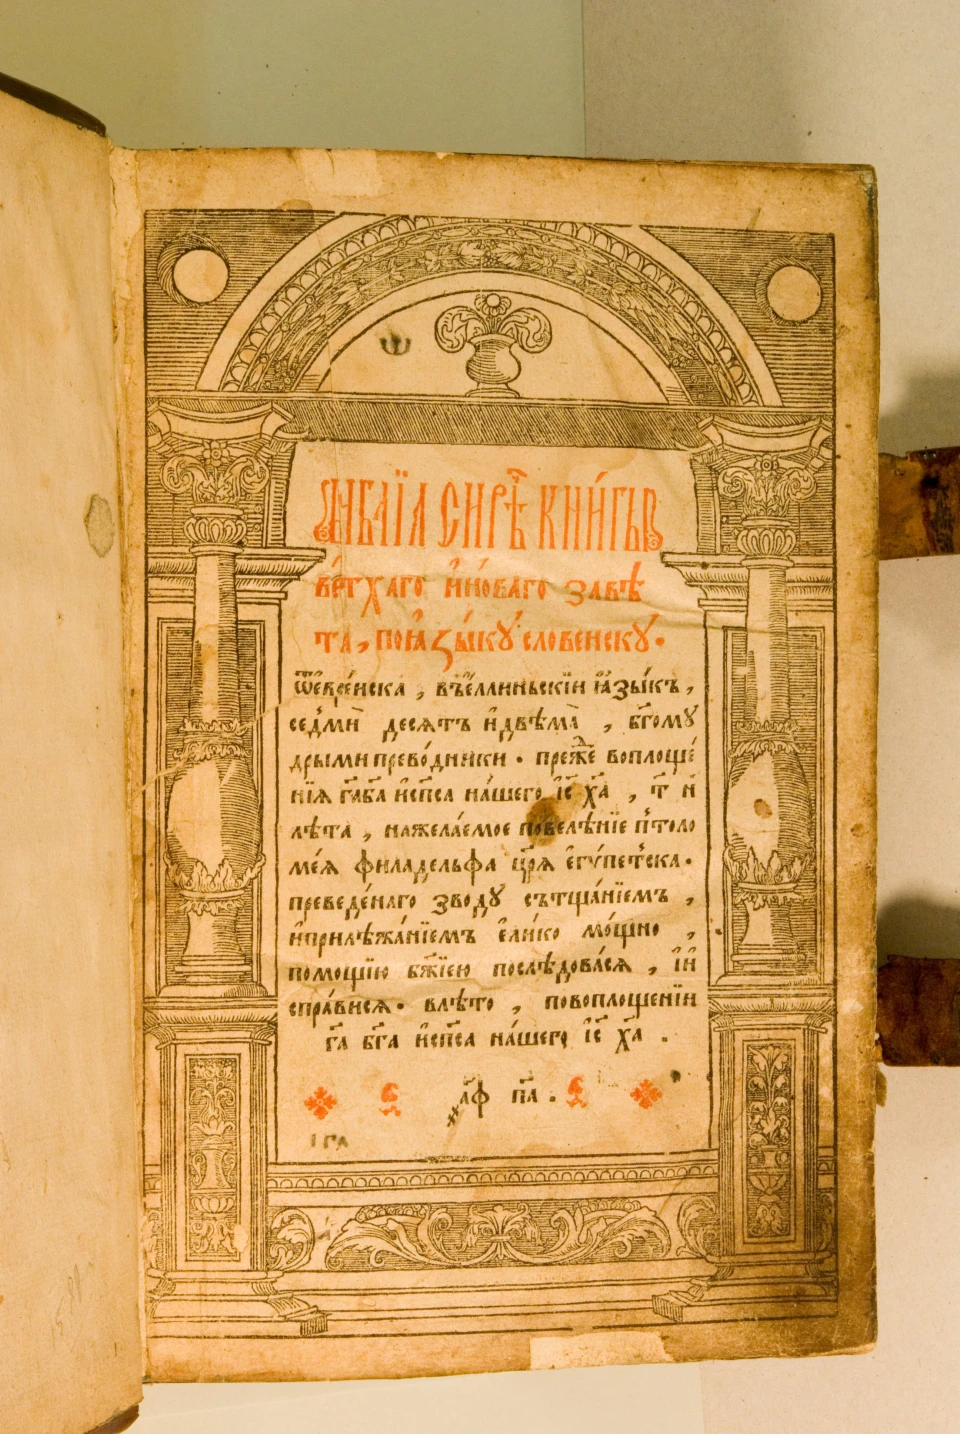 Бѵблїа сирѣ́ч кни́гы
ве́тхаго и҆но́ваго завѣ
та, поꙗ҆зы́ку словенску.
ѿе҆вре́йска, въе҆ллиньскїи ꙗ҆зы́къ,
се́дмиⷣ десѧтъ и҆двѣма̀, бг҃ому
дрыми прево́дники. преⷤ́е воплоще́
нїѧ гⷭ҇а бг҃а и҆сп҃са на́шего і҆с҃ х҃а, т҃ и҃
лѣта, нажела́емое повелѣ́нїе пто́ло
ме́ѧ филаде́льфа цр҃ѧ е҆гѵ́петска.
преведе́наго зводу сътща́нїемъ,
и҆прилѣжа́нїемъ е҆ли́ко мо́щно,
помощїю бж҃їею послѣдовасѧ, і҆и
спра́висѧ. влѣ́то, повоплоще́нїи
гⷭ҇а бг҃а и҆сп҃са на́шего і҆с҃ х҃а.
҂а҃ф п҃а.